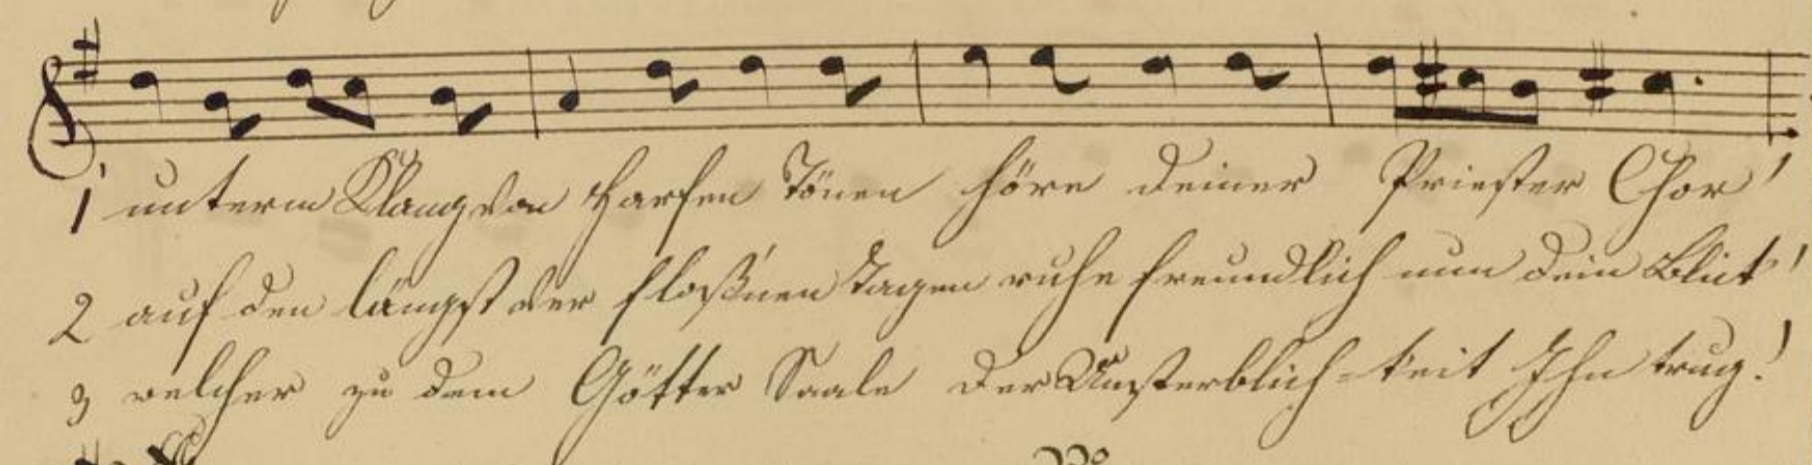 1 unterm Klang von Harfen Tönen höre deiner Priester Chor!
2 auf den längst ver floßnen Tagen ruhe freundlich nun dein Blick!
3 welcher zu dem Götter Saale der Unsterblich-keit Ihn trug!